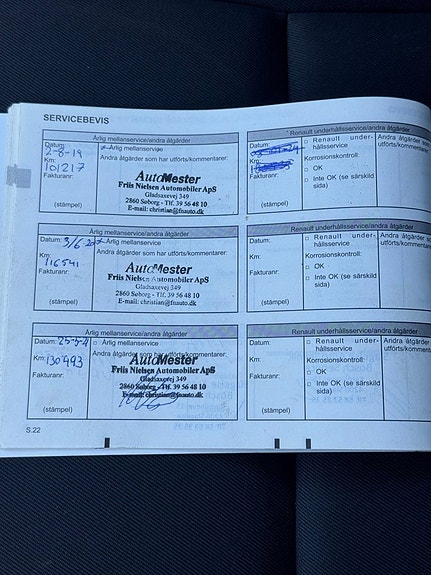 SERVICEBEVIS
Årlig mellanservice/andra åtgärder
Datum:
2-8-19
Km:
101217
Fakturanr:
(stämpel)
Årlig mellanservice
Andra åtgärder som har utförts/kommentarer:
AutoMester
Friis Nielsen Automobiler ApS
Gladsaxevej 349
2860 Søborg - Tlf. 39 56 48 10
E-mail: christian@fnauto.dk
Renault underhållsservice/andra åtgärder
Datum:
Km:
Fakturanr:
(stämpel)
□ Renault under-
hållsservice
Korrosionskontroll:
□ OK
□ Inte OK (se särskild
sida)
Andra åtgärder
utförts/kommentarer
Årlig mellanservice/andra åtgärder
Datum:
Km:
116541
Fakturanr:
(stämpel)
Årlig mellanservice
Andra åtgärder som har utförts/kommentarer:
AutoMester
Friis Nielsen Automobiler ApS
Gladsaxevej 349
2860 Søborg - Tlf. 39 56 48 10
E-mail: christian@fnauto.dk
Renault underhållsservice/andra åtgärder
Datum:
Km:
Fakturanr:
(stämpel)
□ Renault under-
hållsservice
Korrosionskontroll:
□ OK
□ Inte OK (se särskild
sida)
Andra åtgärder
utförts/kommentarer
Årlig mellanservice/andra åtgärder
Datum: 25-5-21
Km: 130493
Fakturanr:
(stämpel)
□ Årlig mellanservice
Andra åtgärder som har utförts/kommentarer:
AutoMester
Friis Nielsen Automobiler ApS
Gladsaxevej 349
2860 Søborg - Tlf. 39 56 48 10
E-mail: christian@fnauto.dk
Renault underhållsservice/andra åtgärder
Datum:
Km:
Fakturanr:
(stämpel)
□ Renault under-
hållsservice
Korrosionskontroll:
□ OK
□ Inte OK (se särskild
sida)
Andra åtgärder
utförts/kommentarer
S.22